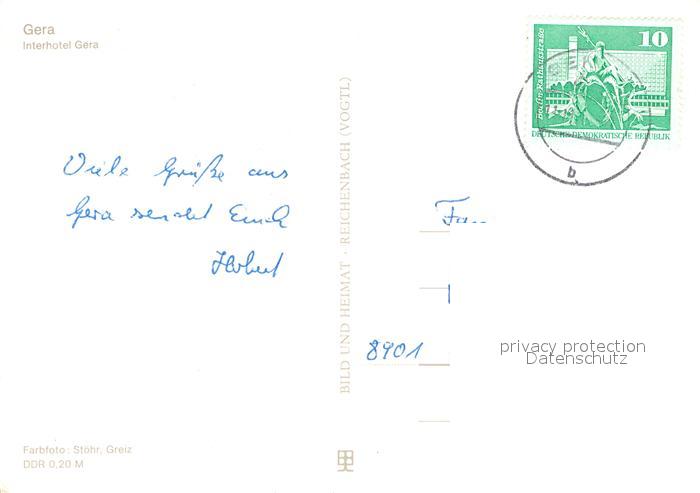 Gera
Interhotel Gera
10
Berlin-Rathausstraße
DEUTSCHE DEMOKRATISCHE REPUBLIK
b
Viele Grüße aus
Gera sendet Euch
BILD UND HEIMAT · REICHENBACH (VOGTL)
Fa
8901
privacy protection
Datenschutz
Farbfoto: Stöhr, Greiz
DDR 0,20 M